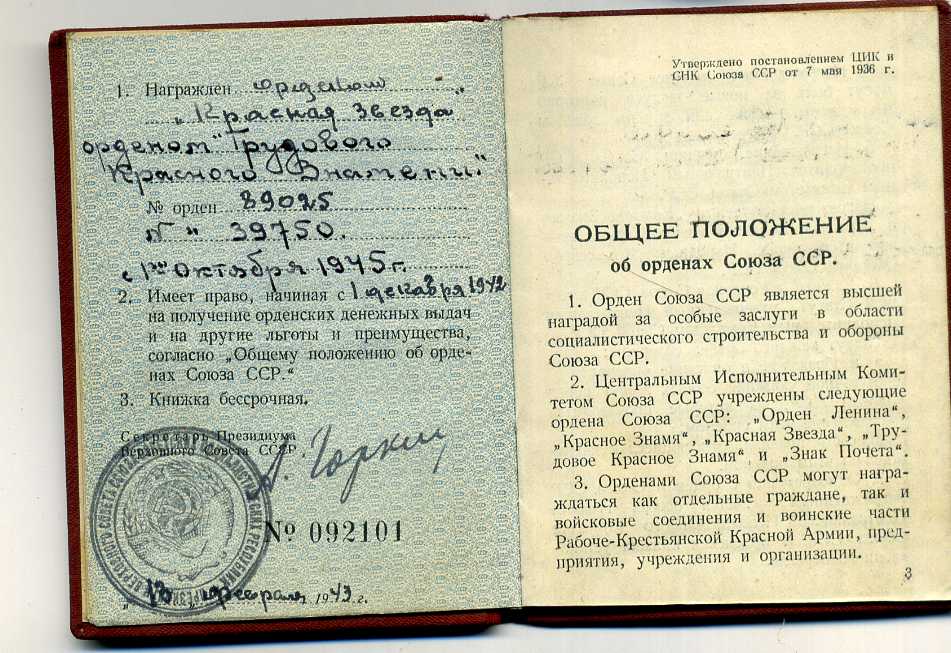 1. Награжден орденом
„Красная Звезда
орденом "Трудового
Красного Знамени"
№ орден 89025
№ " 39750.
с 1го Октября 1945г.
2. Имеет право, начиная с 1 декабря 1942
на получение орденских денежных выдач
и на другие льготы и преимущества,
согласно „Общему положению об орде-
нах Союза ССР.“
3. Книжка бессрочная.
Секретарь Президиума
Верховного Совета СССР А. Горкин
№ 092101
февраля 1943 г.
Утверждено постановлением ЦИК и
СНК Союза ССР от 7 мая 1936 г.
ОБЩЕЕ ПОЛОЖЕНИЕ
об орденах Союза ССР.
1. Орден Союза ССР является высшей
наградой за особые заслуги в области
социалистического строительства и обороны
Союза ССР.
2. Центральным Исполнительным Коми-
тетом Союза ССР учреждены следующие
ордена Союза ССР: „Орден Ленина“,
„Красное Знамя“, „Красная Звезда“, „Тру-
довое Красное Знамя“, и „Знак Почета“.
3. Орденами Союза ССР могут награ-
ждаться как отдельные граждане, так и
войсковые соединения и воинские части
Рабоче-Крестьянской Красной Армии, пред-
приятия, учреждения и организации.
3